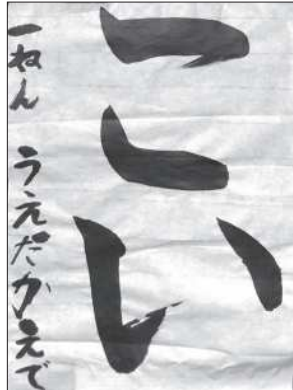 こい
一ねん うえだかえで